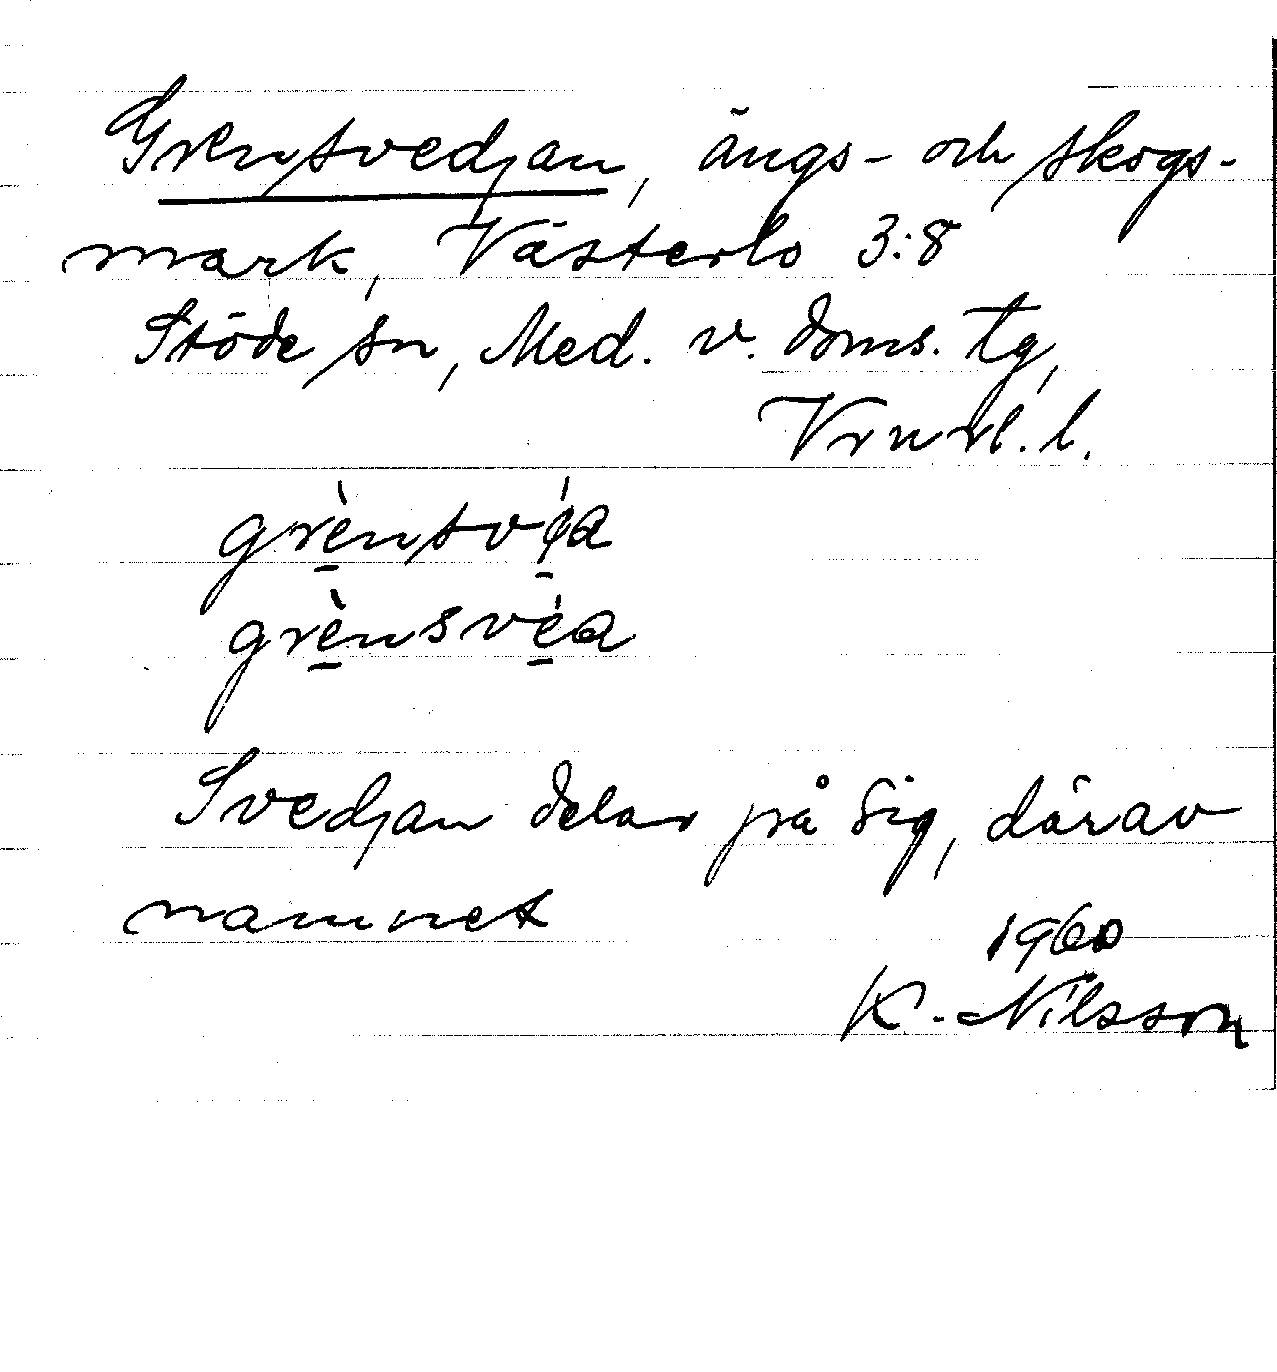 Grensvedjan, ängs- och skogs-
mark, Västerlo 3:8
Stöde sn, Med. v. doms. tg,
Vrnrl. l.
grènsvéa
grènsvéa
Svedjan delar på sig, därav
namnet
1960
K. Nilsson